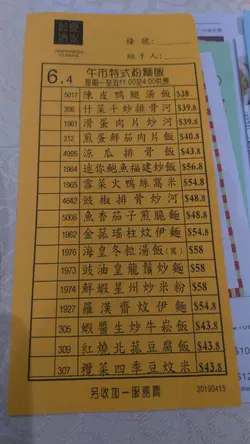 檯號:
經手人:
6.4 午市特式粉麵飯
星期一至五11:00至4:00供應
5017 陳皮鴨腿湯飯 $38
308 什菜干炒排骨河 $39.8
1961 滑蛋肉片炒河 $39.8
312 煎蛋鮮茄肉片飯 $40.8
4995 涼瓜排骨飯 $43.8
1964 迷你鮑魚福建炒飯 $56.8
1965 雪菜火鴨絲窩米 $54.8
4642 豉椒排骨炒河 $48.8
5006 魚香茄子煎脆麵 $48.8
1962 金菇瑤柱炆伊麵 $54.8
1976 海皇冬粒湯飯(窩) $58
1973 豉油皇龍鬚炒麵 $58
1974 鮮蝦星洲炒米粉 $58
1927 羅漢齋炆伊麵 $54.8
305 蝦醬生炒牛崧飯 $43.8
309 紅燒北菇豆腐飯 $43.8
307 欖菜四季豆炆米 $43.8
另收加一服務費
20190415